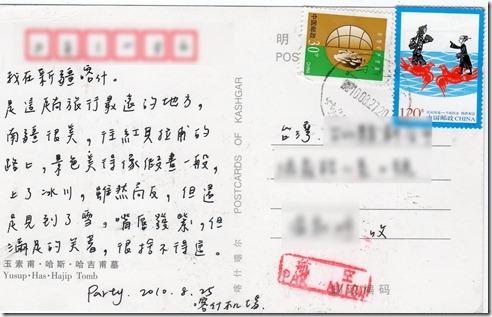 我在新疆喀什。
是這趟旅行最遠的地方,
南疆很美,往紅其拉甫的
路上,景色美得像假畫一般,
上了冰川,雖然高反,但還
是見到了雪,嘴唇發紫,但
滿足的笑著,很捨不得這。
玉素甫·哈斯·哈吉甫墓
Yusup·Has·Hajip Tomb
Party. 2010.8.25
喀什机場.
POSTCARDS OF KASHGAR
喀什噶尔
明
POST
中国邮政
30分
120分
中国邮政 CHINA
台灣,
收
编码